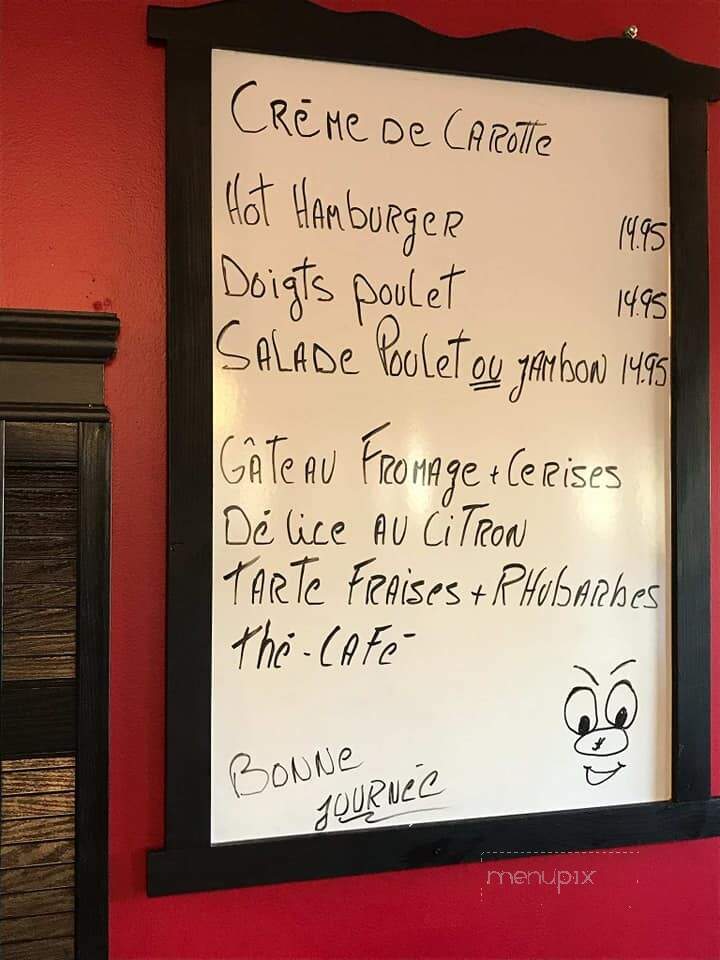 CRÈME DE CAROTTE
HOT HAMBURGER 14.95
DOIGTS POULET 14.95
SALADE POULET OU JAMBON 14.95
GÂTEAU FROMAGE + CERISES
DÉLICE AU CITRON
TARTE FRAISES + RHUBARBES
THÉ - CAFÉ
BONNE
JOURNÉE
menupix